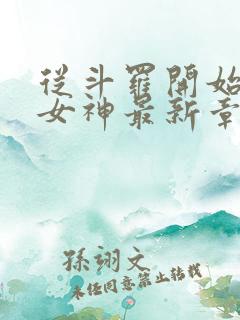 從斗羅開始
女神最新章
孫翊文
未经同意禁止转载